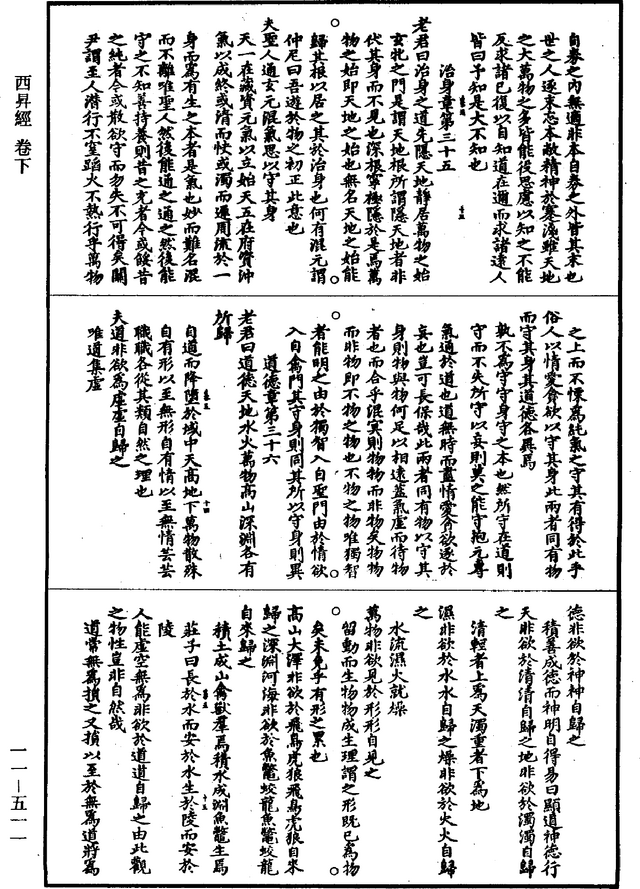 西昇經 卷下
自券之內無適非本自券之外皆其末也
世之人逐末忘本敝精神於蹇淺雖天地
之大萬物之多皆能役思慮以知之不能
反求諸己復以自知道在邇而求諸遠人
皆曰予知是大不知也
治身章第三十五
老君曰治身之道先隱天地靜居萬物之始
玄牝之門是謂天地根所謂隱天地者非
伏其身而不見也深根寧極隱於是焉萬
物之始即天地之始也無名天地之始能
歸其根以居之其於治身也何有混元謂
仲尼曰吾遊於物之初正此意也
夫聖人通玄元混氣思以守其身
天一在藏資元氣以立始天五在府資沖
氣以成終或清而忮或濁而運周流於一
身而寓有生之本者是氣也妙而難名混
而不離唯聖人然後能通之通之然後能
守之不知善持養則昔之充者今或餒昔
之純者今或散欲守而勿失不可得矣關
尹謂至人潛行不窒蹈火不熱行乎萬物
之上而不慄為純氣之守其有得於此乎
俗人以情愛貪欲以守其身此兩者同有物
而守其身其道德各異焉
孰不為守守身守之本也然所守在道則
守而不失所守以妄則異之能守抱元專
氣適於道也道無時而盡情愛貪欲逐於
妄也豈可長保哉此兩者同有物以守其
身則物與物何足以相遠蓋氣虛而待物
者也而合乎混冥則物物而非物矣物物
而非物即不物之物也不物之物唯獨智
者能明之由於獨智入自聖門由於情欲
入自禽門其守身則同其所以守身則異
道德章第三十六
老君曰道德天地水火萬物高山深淵各有
所歸
自道而降墮於域中天高地下萬物散殊
自有形以至無形自有情以至無情芸芸
職職各從其類自然之理也
夫道非欲為虛虛自歸之
唯道集虛
德非欲於神神自歸之
積善成德而神明自得易曰顯道神德行
天非欲於清清自歸之地非欲於濁濁自歸
之
清輕者上為天濁重者下為地
濕非欲於水水自歸之燥非欲於火火自歸
之
水流濕火就燥
萬物非欲見於形形自見之
留動而生物物成生理謂之形既已為物
矣未免乎有形之累也
高山大澤非欲於飛鳥虎狼飛鳥虎狼自來
歸之深淵河海非欲於魚鼈蛟龍魚鼈蛟龍
自來歸之
積土成山禽獸羣焉積水成淵魚鼈生焉
莊子曰長於水而安於水生於陵而安於
陵
人能虛空無為非欲於道道自歸之由此觀
之物性豈非自然哉
道常無為損之又損以至於無為道將為
一一－五一一